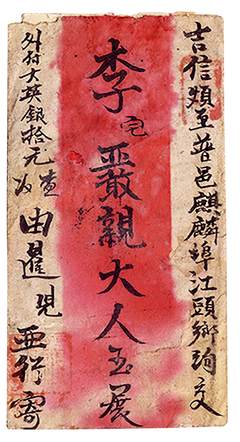 吉信煩至普邑麒麟埠江頭鄉詢交
李宅嚴親大人玉展
外付大英銀拾元
由暹兒亞寄